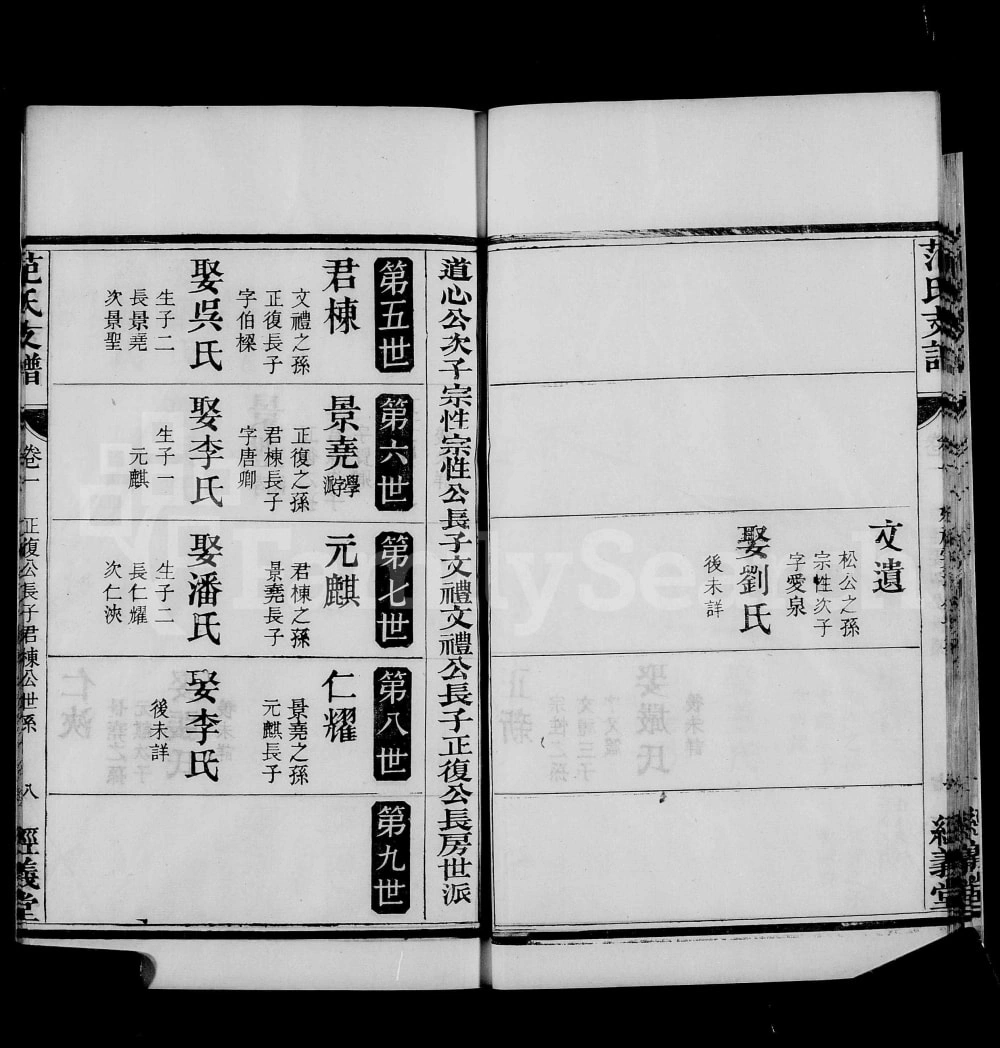 文遺
松公之孫
宗性次子
字愛泉
娶劉氏
後未詳
道心公次子宗性宗性公長子文禮文禮公長子正復公長房世派
第五世
君棟
文禮之孫
正復長子
字伯樑
娶吳氏
生子二
長景堯
次景聖
第六世
景堯
學
游
正復之孫
君棟長子
字唐卿
娶李氏
生子一
元麒
第七世
元麒
君棟之孫
景堯長子
娶潘氏
生子二
長仁耀
次仁浹
第八世
仁耀
景堯之孫
元麒長子
娶李氏
後未詳
第九世
范氏支譜
卷一
正復公長子君棟公世系
八
經義堂
FamilySearch